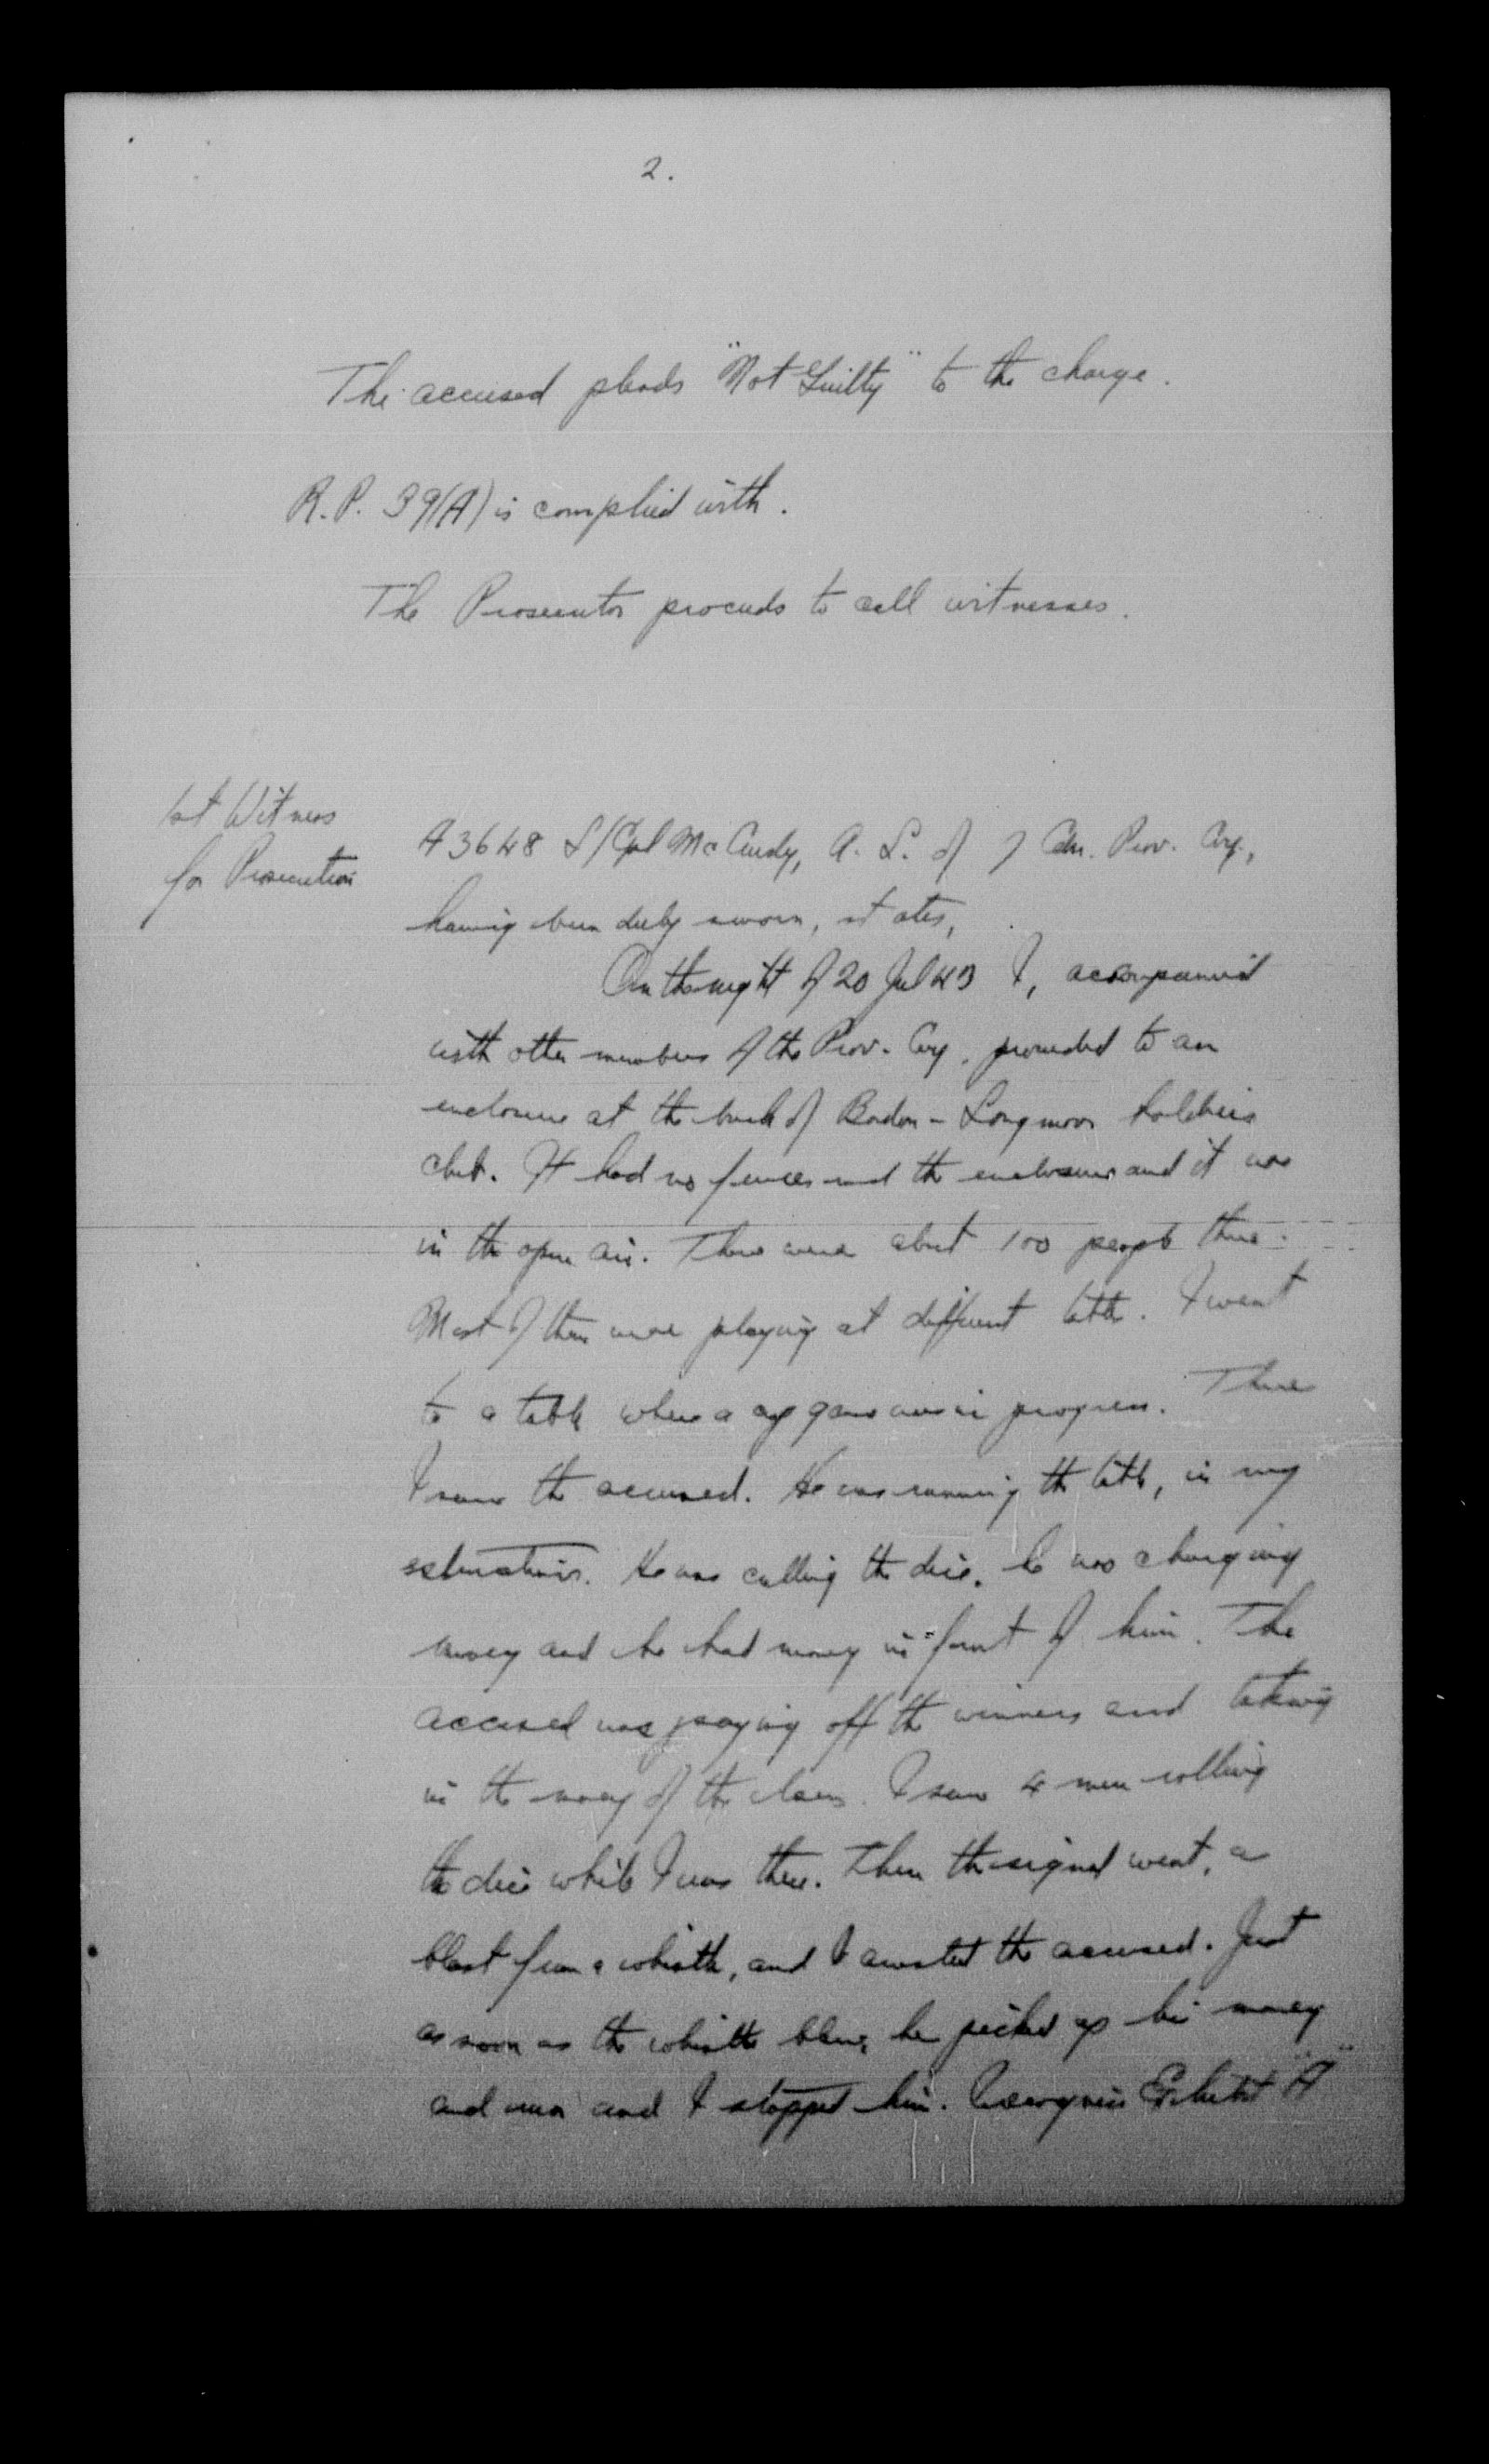 2.
The accused pleads "Not Guilty" to the charge.
R.P. 39(A) is complied with.
The Prosecutor proceeds to call witnesses.
1st Witness
for Prosecution
A3648 L/Cpl McCurdy, A. L. of 7 Cdn. Prov. Coy.,
having been duly sworn, states,
On the night of 20 Jul 43 I, accompanied
with other members of the Prov. Coy. proceeded to an
enclosure at the back of Bordon - Longmoor Soldiers
club. It had no fences and the enclosure and it was
in the open air. There were about 100 people there.
Most of them were playing at different tables. I went
to a table where a game was in progress. There
I saw the accused. He was running the table, in my
estimation. He was calling the dice. he was changing
money and he had money in front of him. The
accused was paying off the winners and taking
in the money of the losers. I saw 4 men rolling
the dice while I was there. Then the signal went, a
blast from a whistle, and I arrested the accused. Just
as soon as the whistle blew, he picked up his money
and ran and I stopped him. I recognise Exhibit "A"